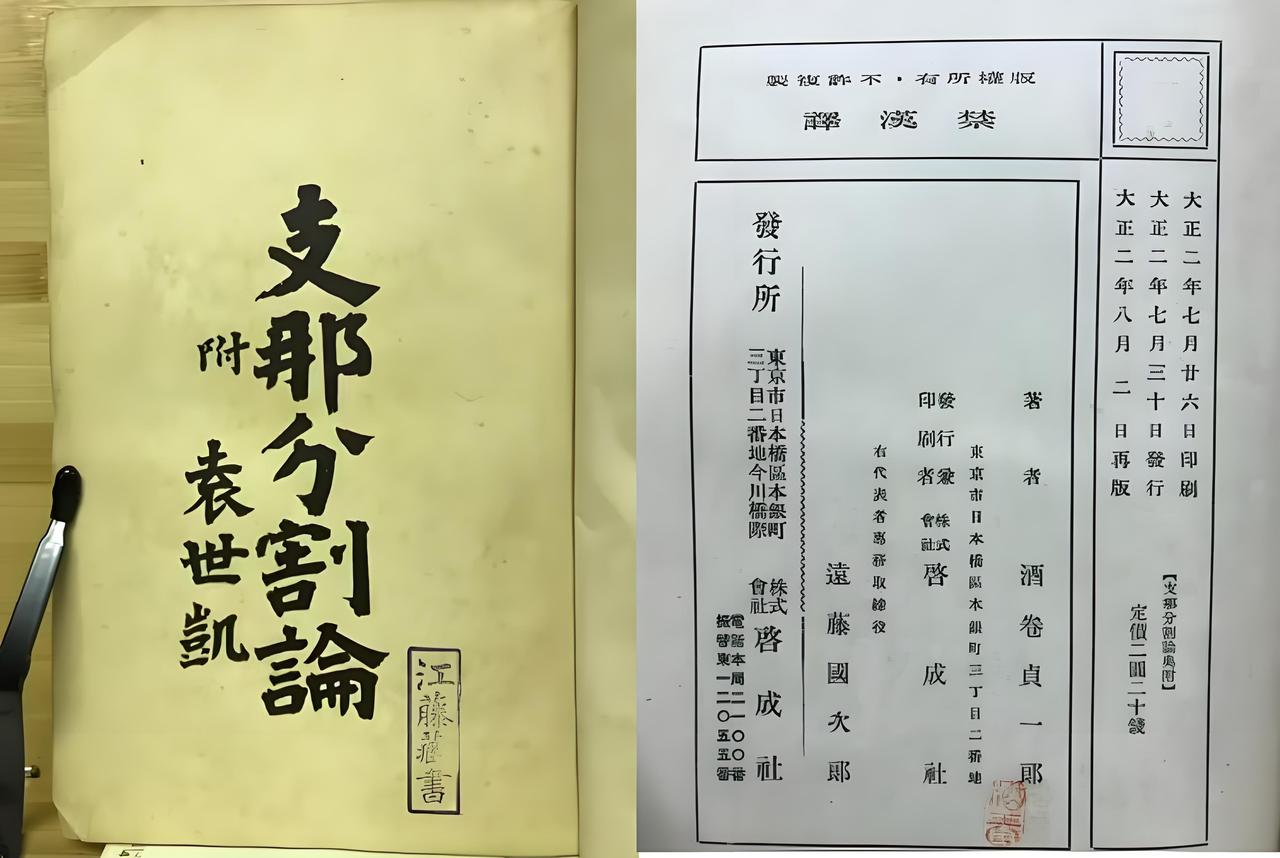 支那分割論
附 袁世凱
江藤蔵書
版權所有・不許複製
禁漢譯
大正二年七月廿六日印刷
大正二年七月三十日發行
大正二年八月二日再版
【支那分割論奥附】
定價二圓二十錢
著者 酒卷貞一郎
東京市日本橋區本銀町三丁目二番地
發行兼印刷者 株式會社 啓成社
右代表者專務取締役
遠藤國次郎
發行所
東京市日本橋區本銀町
三丁目二番地今川橋際
株式會社 啓成社
電話本局二一〇〇番
振替東京一二〇五五番